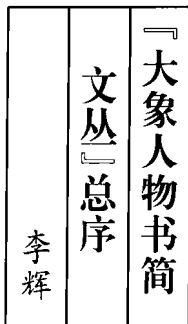 『大象人物书简
文丛』总序
李辉